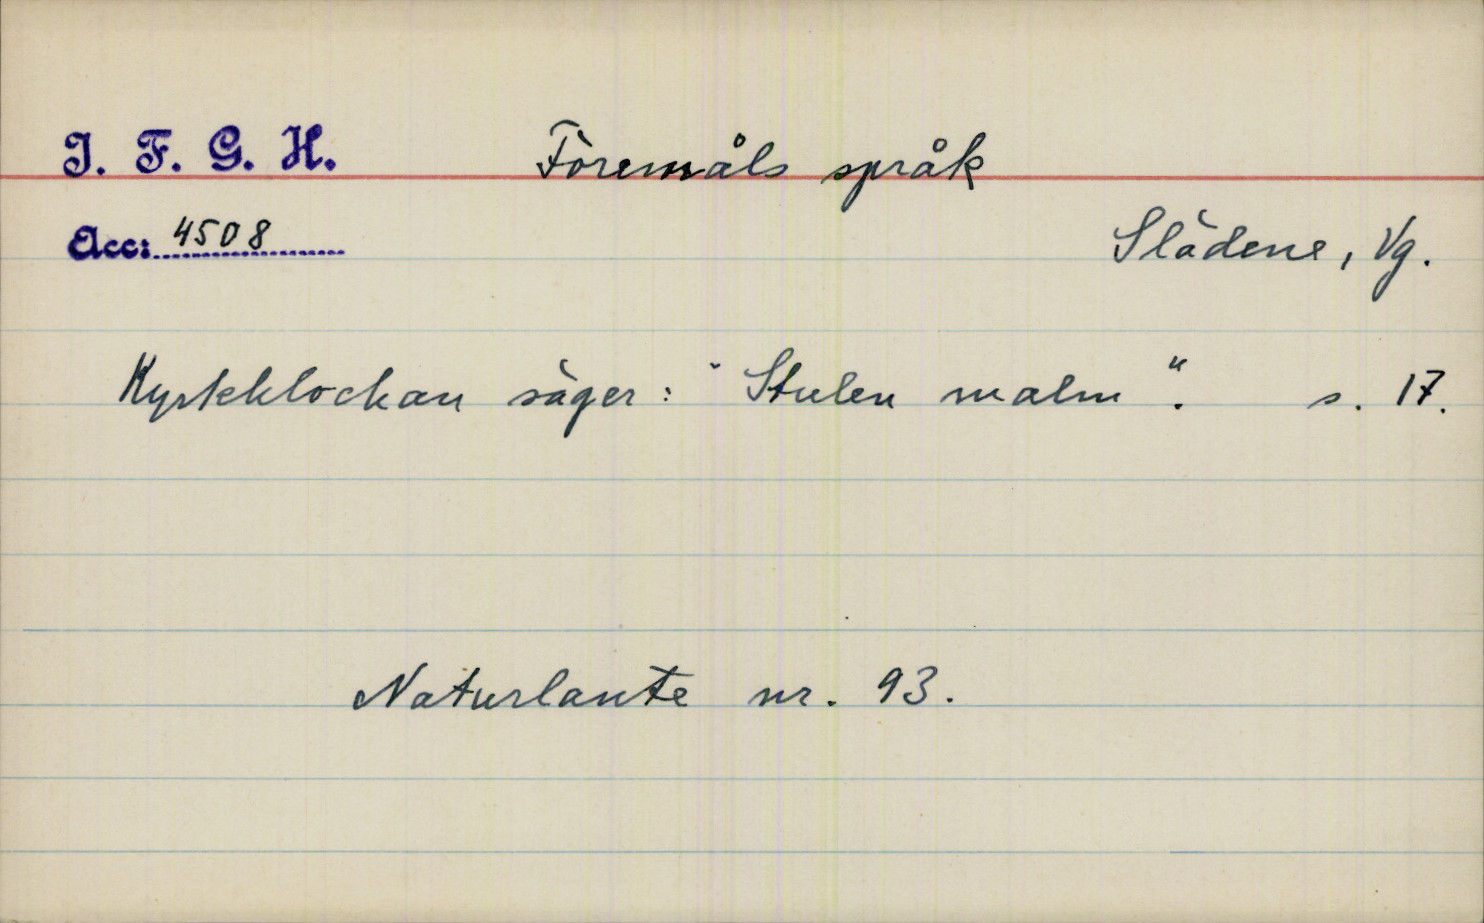 I. F. G. H. Föremåls språk
Acc: 4508
Slädene, Vg.
Kyrkklockan säger: "Stulen malm". s. 17.
Naturlaute nr. 93.